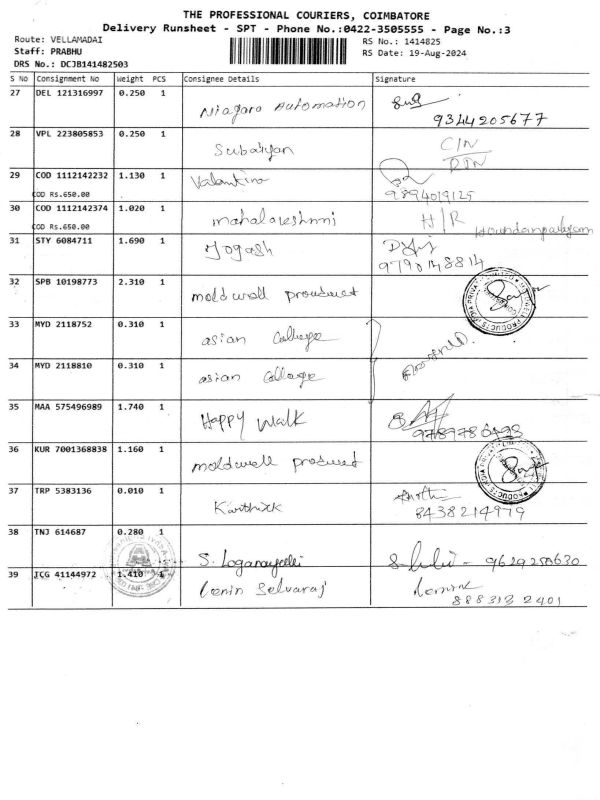 THE PROFESSIONAL COURIERS, COIMBATORE
Delivery Runsheet - SPT - Phone No.:0422-3505555 - Page No.:3
Route: VELLAMADAI RS No.: 1414825
Staff: PRABHU RS Date: 19-Aug-2024
DRS No.: DCJB141482503
S No Consignment No Weight PCS Consignee Details Signature
27 DEL 121316997 0.250 1 Niagara Automation
9344205677
28 VPL 223805853 0.250 1 Subaiyan C/N
29 COD 1112142232 1.130 1 Valantino
COD Rs.650.00 9894019125
30 COD 1112142374 1.020 1 mahalareshmni H/R
COD Rs.650.00
31 STY 6084711 1.690 1 Yogash
9790148814
32 SPB 10198773 2.310 1 moldwell produvet
33 MYD 2118752 0.310 1 asian College
34 MYD 2118810 0.310 1 asian College
35 MAA 575496989 1.740 1 Happy walk
36 KUR 7001368838 1.160 1 moldwell produvet
37 TRP 5383136 0.010 1 Karthick
8438214979
38 TNJ 614687 0.280 1 S. Loganayaki
39 TCG 41144972 1.410 1 Lenin Selvaraj